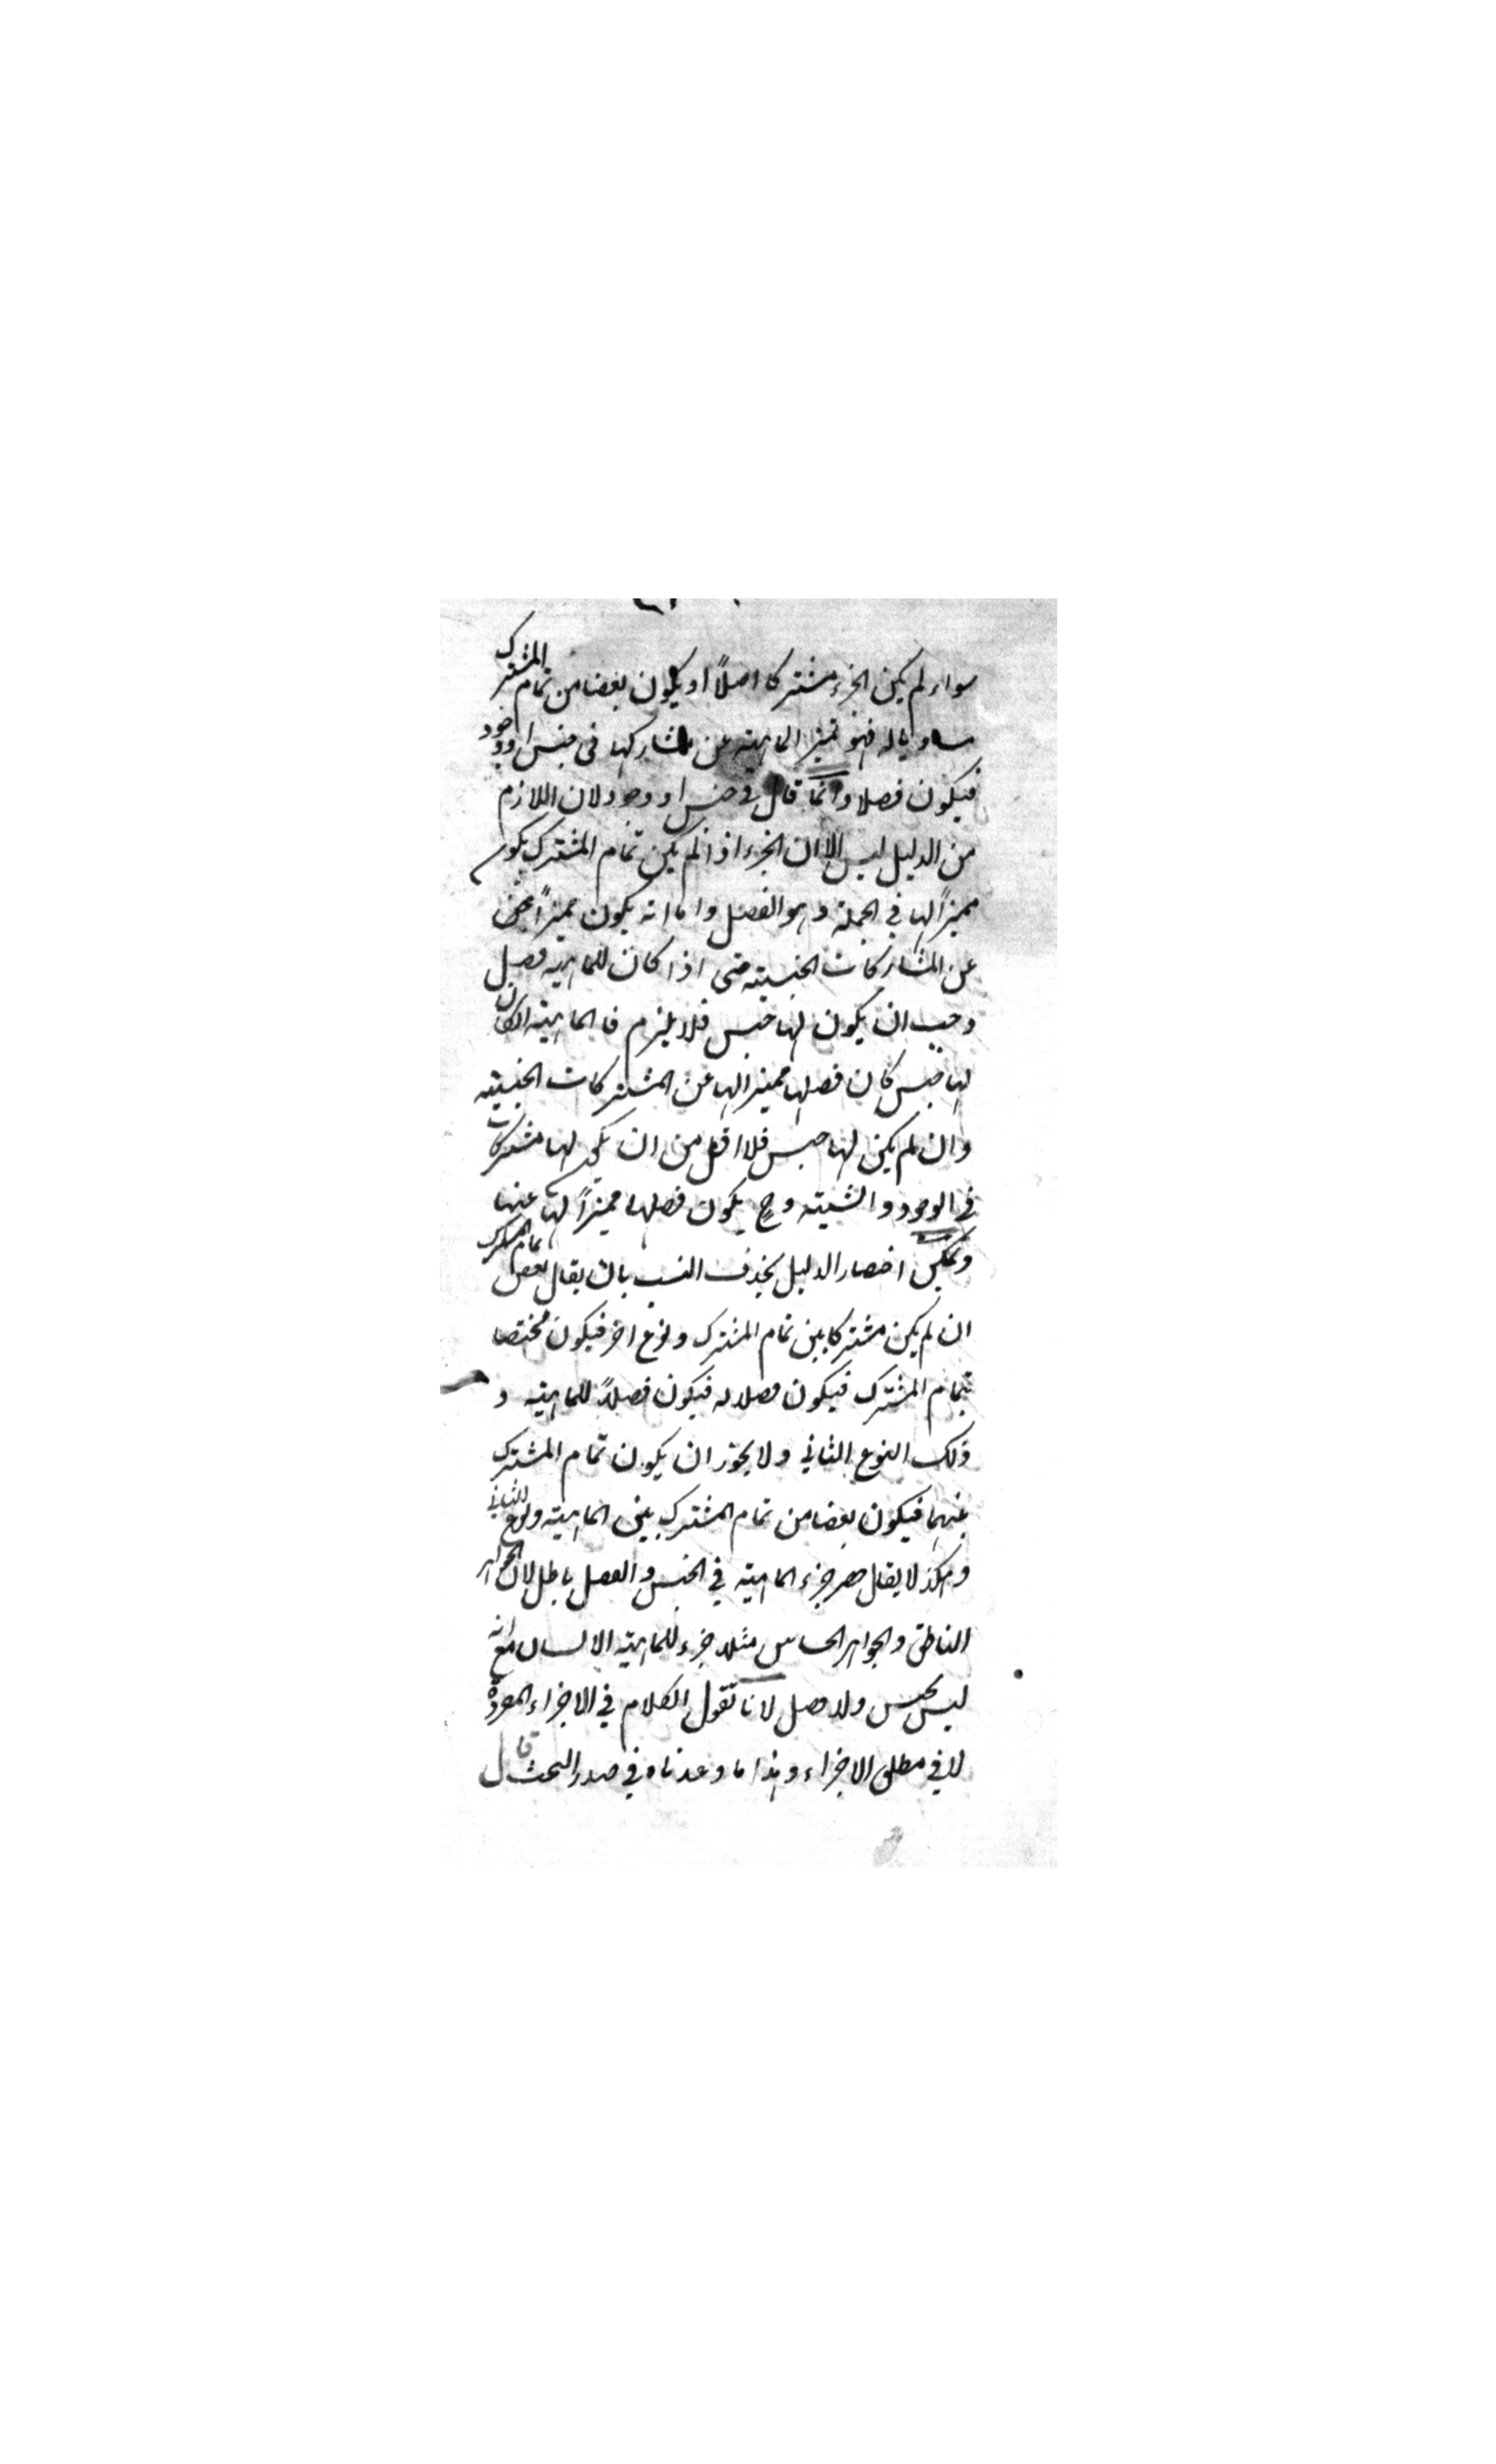 سواء لم يكن الجزء مشتركا اصلاً او يكون بعضا من تمام المشترك
مساويا له فهو تميز الماهية عن مشاركها فى جنس او وجود
فيكون فصلا وانما قال فى جنس او وجود لان اللازم
من الدليل ليس الا ان الجزء اذا لم يكن تمام المشترك يكون
مميزاً لها في الجملة وهو الفصل واما انه يكون مميزاً
عن المشاركات الجنسية حتى اذا كان للماهية فصل
وجب ان يكون لها جنس فلا يلزم فالماهية ان كان
لها جنس كان فصلها مميزا لها عن المشتركات الجنسية
وان لم يكن لها جنس فلا اقل من ان يكون لها مشتركات
في الوجود والشيئية وح يكون فصلها مميزاً لها عنها
ويمكن اختصار الدليل بحذف النسب بان يقال بعض تمام المشترك
ان لم يكن مشتركا بين تمام المشترك ونوع اخر فيكون مختصا
بتمام المشترك فيكون فصلا له فيكون فصلاً للماهية و
ذلك النوع الثاني ولا يجوز ان يكون تمام المشترك
بينهما فيكون بعضا من تمام المشترك بين الماهية ونوع الثاني
وهكذا لا يقال حصر جزء الماهية في الجنس والفصل باطل لان الجواهر
الناطق والجواهر الحساس مثلا جزء للماهية الانسان مع انه
ليس بجنس ولا فصل لانا نقول الكلام في الاجزاء المفردة
لا في مطلق الاجزاء وهذا ما وعدناه في صدر البحث قال